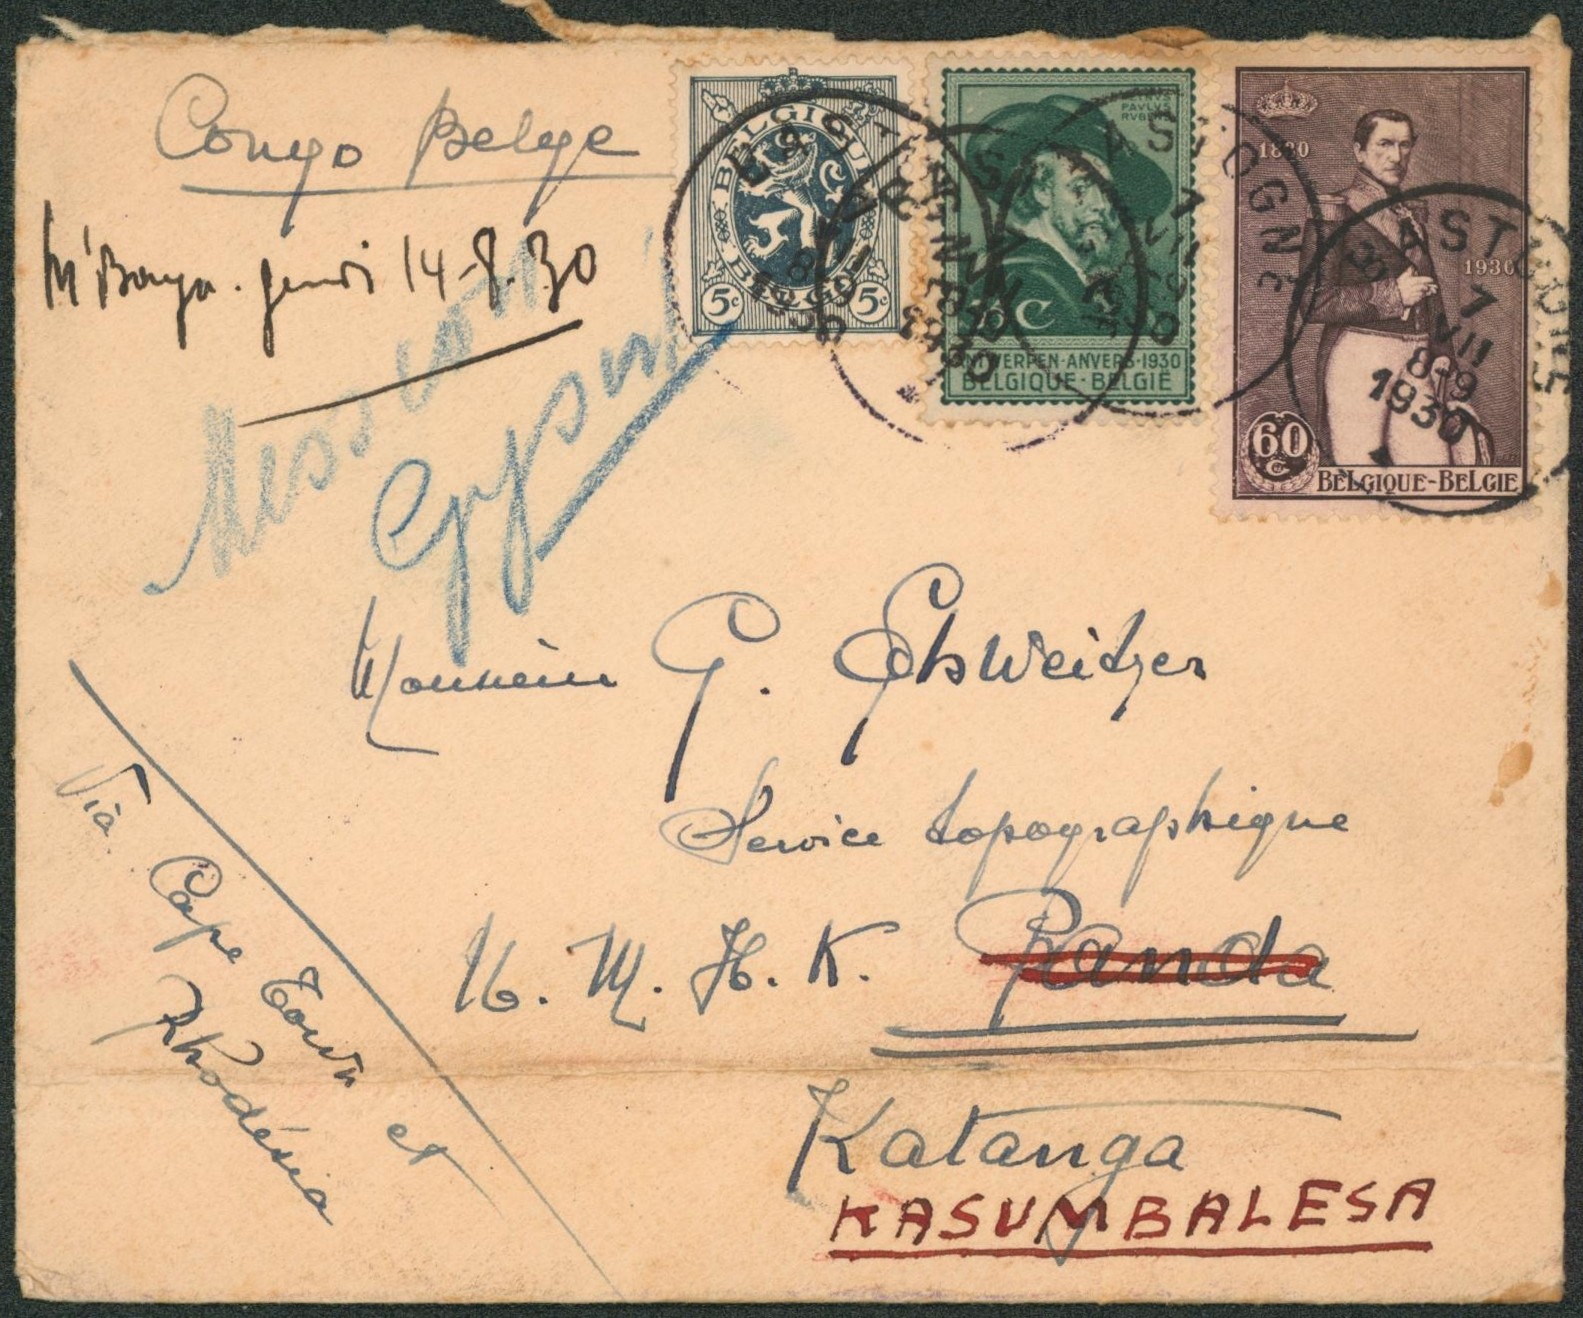 Congo Belge
M'Baya. jeudi 14-8.30
Monsieur G. Schweitzer
Service topographique
U. M. H. K. Panda
Katanga
KASUMBALESA
Via Cape Town et
Rhodésia
BELGIQUE
BELGIË
5c 5c
PAVLVS
RVBENS
35 C
ANTWERPEN·ANVERS·1930
BELGIQUE·BELGIË
1830
1930
60
C
BELGIQUE-BELGIE
BASTOGNE
7
VII
8-9
1930
BASTOGNE
7
VII
8-9
1930